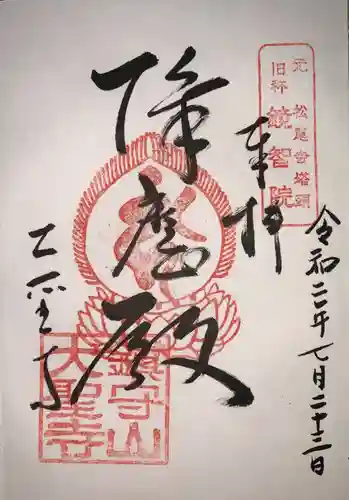 元 松尾寺塔頭
旧称 鏡智院
奉拝
降魔殿
大聖寺
令和二年七月二十三日
鎮守山
大聖寺